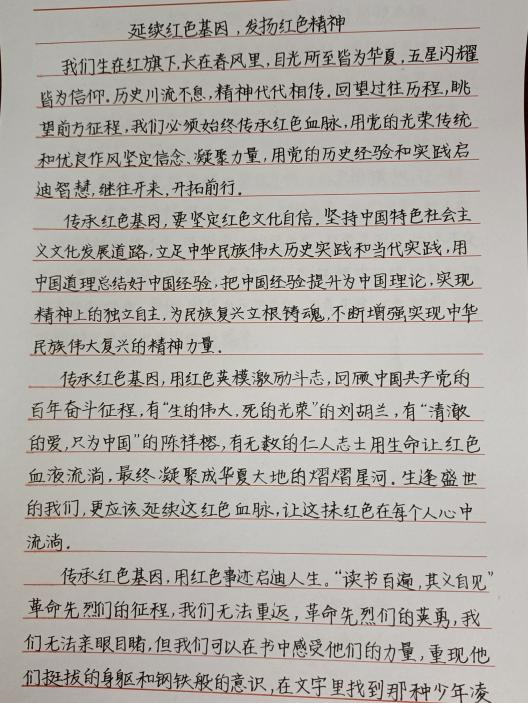 延续红色基因，发扬红色精神
我们生在红旗下，长在春风里，目光所至皆为华夏，五星闪耀
皆为信仰．历史川流不息，精神代代相传．回望过往历程，眺
望前方征程，我们必须始终传承红色血脉，用党的光荣传统
和优良作风坚定信念、凝聚力量，用党的历史经验和实践启
迪智慧，继往开来，开拓前行．
传承红色基因，要坚定红色文化自信．坚持中国特色社会主
义文化发展道路，立足中华民族伟大历史实践和当代实践，用
中国道理总结好中国经验，把中国经验提升为中国理论，实现
精神上的独立自主，为民族复兴立根铸魂，不断增强实现中华
民族伟大复兴的精神力量．
传承红色基因，用红色英模激励斗志，回顾中国共产党的
百年奋斗征程，有“生的伟大，死的光荣”的刘胡兰，有“清澈
的爱，只为中国”的陈祥榕，有无数的仁人志士用生命让红色
血液流淌，最终凝聚成华夏大地的熠熠星河．生逢盛世
的我们，更应该延续这红色血脉，让这抹红色在每个人心中
流淌．
传承红色基因，用红色事迹启迪人生。“读书百遍，其义自见”
革命先烈们的征程，我们无法重返，革命先烈们的英勇，我
们无法亲眼目睹，但我们可以在书中感受他们的力量，重现他
们挺拔的身躯和钢铁般的意识，在文字里找到那种少年凌